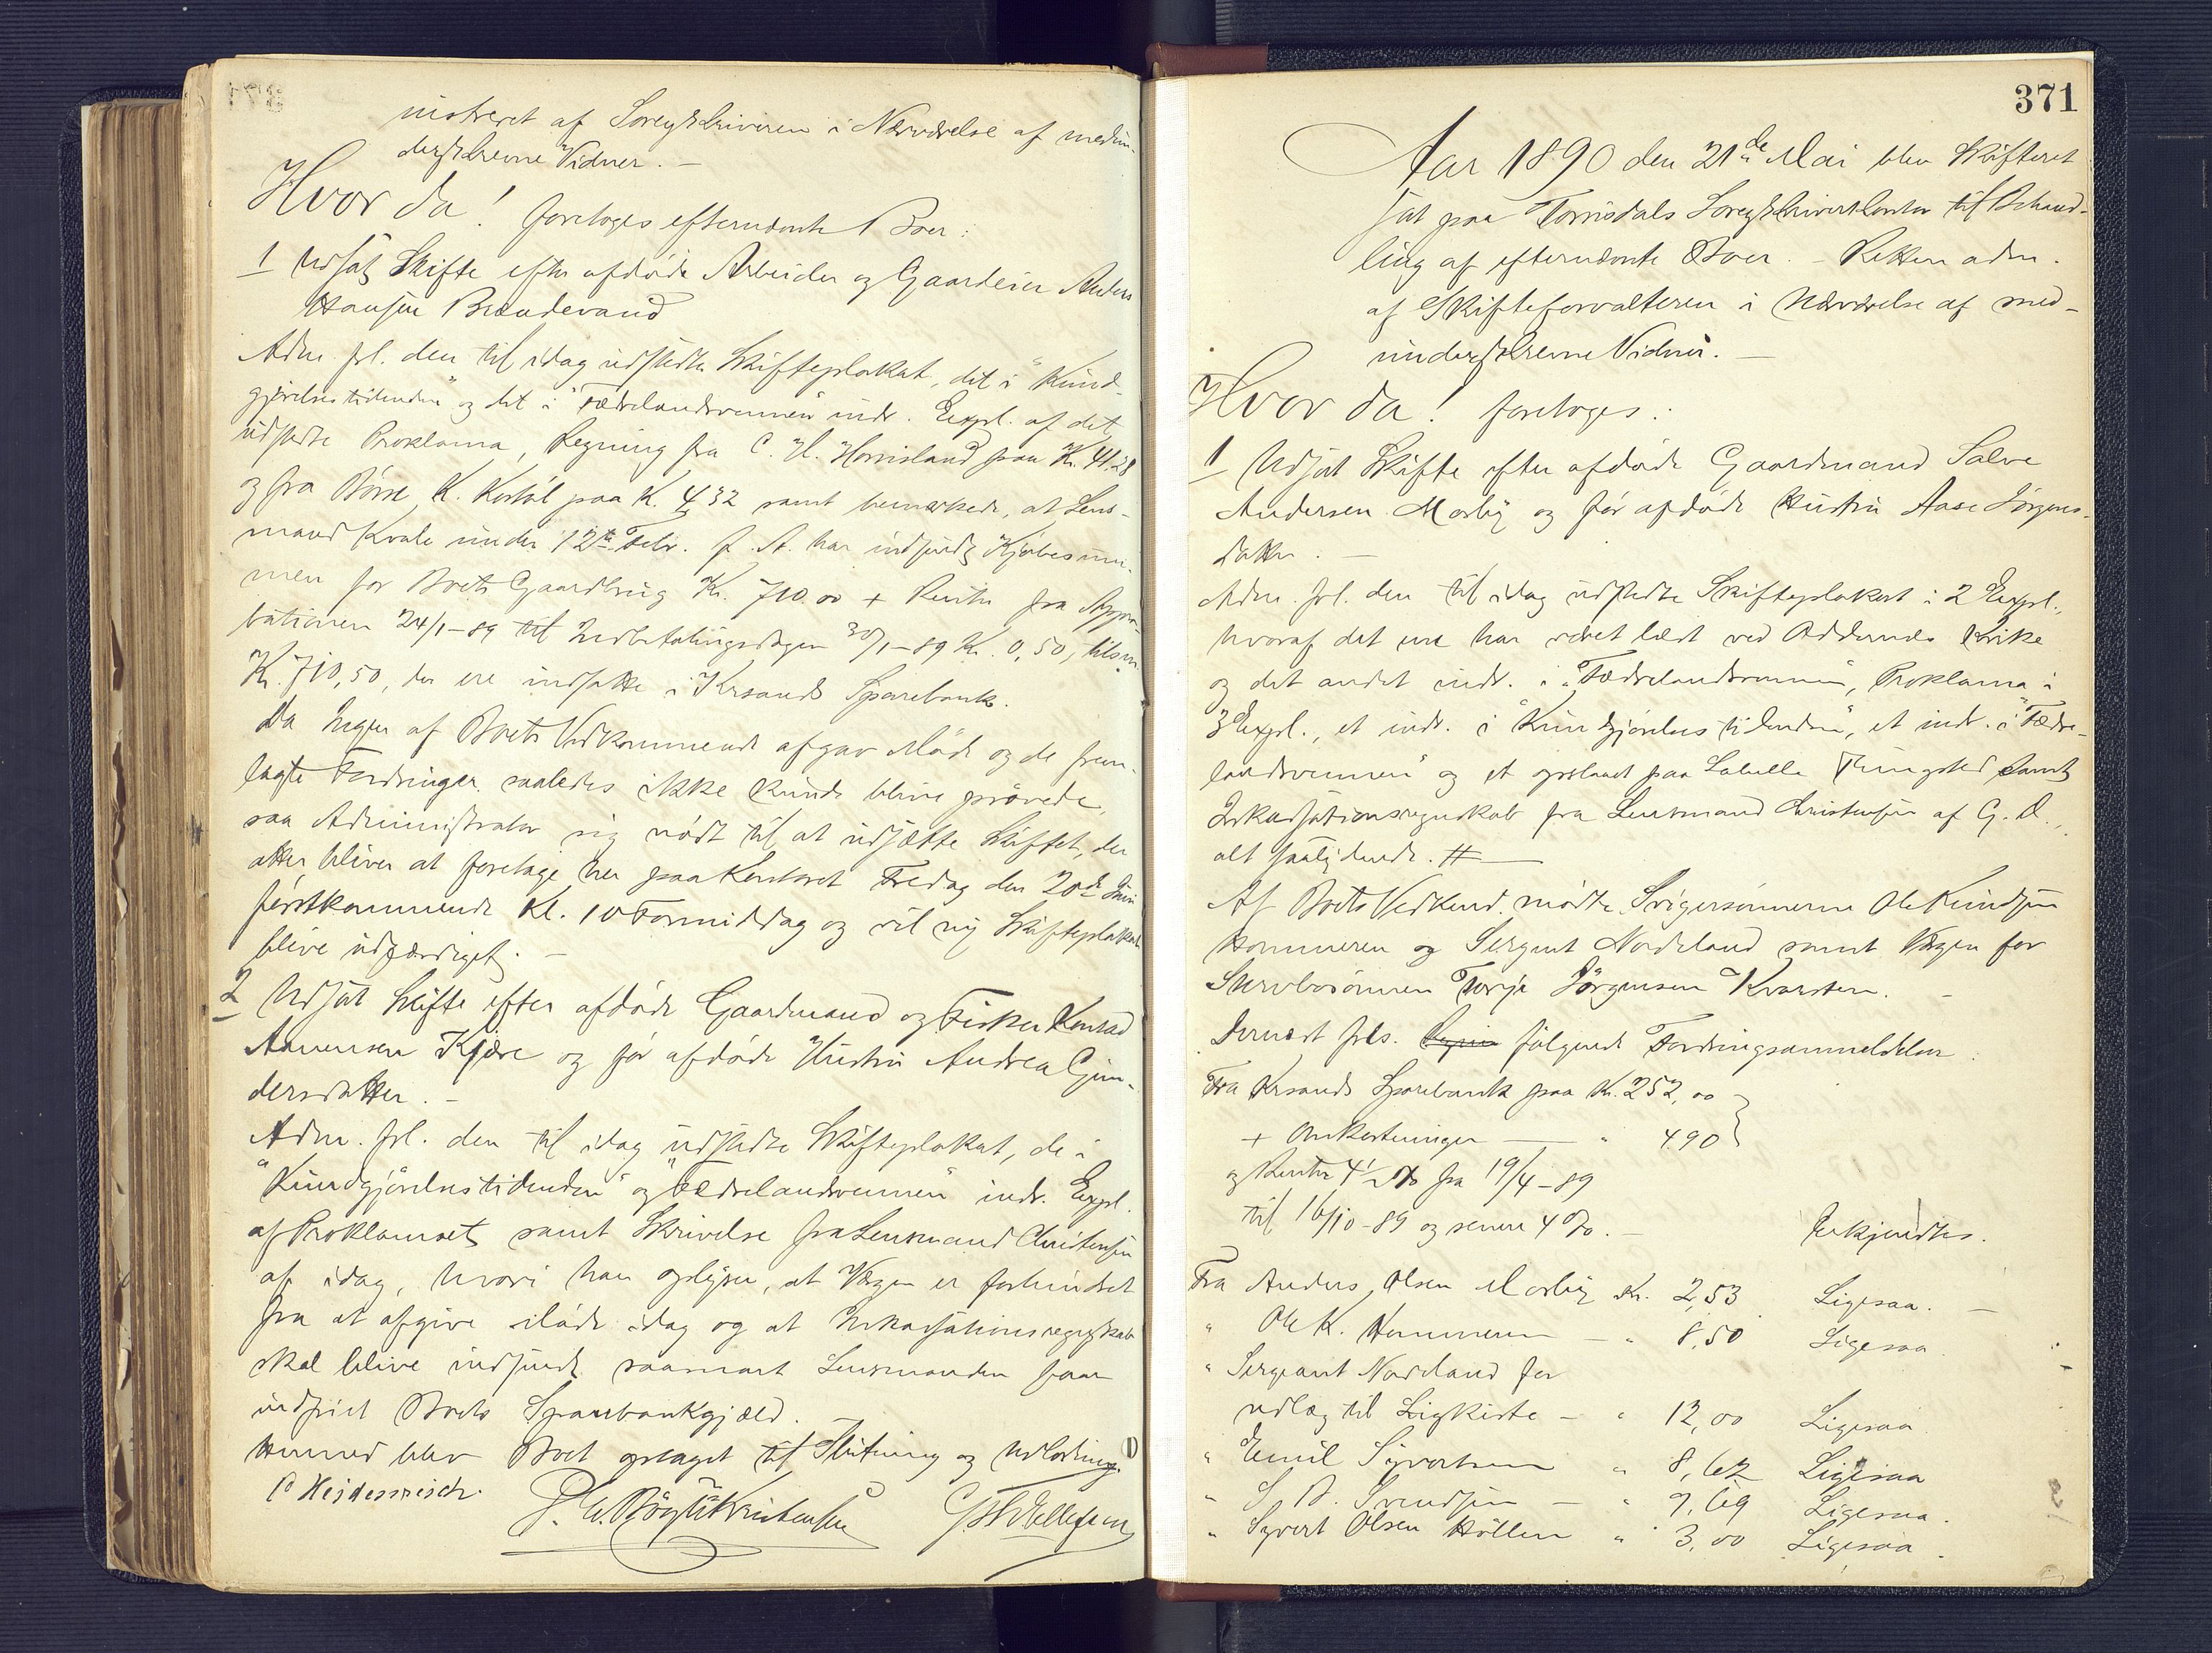 nistreret af Sorenskriveren i Nærværelse af medun-
derskrevne Vidner. –
Hvor da! foretoges efternævnte Boer:
1 Udsat Skifte efter afdøde Arbeider og Gaardeier Anders
Hansen Brandevand
Adm. frl. den til idag udstedte Skifteplakat, det i "Kund-
gjørelsestidenden" og det i "Fædrelandsvennen" indr. Expl. af det
udstedte Proklama, Regning fra C. H. Hornisland paa Kr. 41.28
og fra Børre K. paa K. 4,32 samt bemærkede, at Lens-
mand Kvale under 12te Febr. f. A. har indsendt Kjøbesum-
men for Boets Gaardbrug Kr. 710.00 + Renter fra Appro-
bationen 24/1-89 til Indbetalingsdagen 30/1-89 Kr. 0,50, tilsm.
Kr. 710,50, der ere indsatte i Krsands Sparebank.
Da Ingen af Boets Vedkommende afgav Møde og de frem-
lagte Fordringer saaledes ikke kunde blive prøvede,
saa Administrator sig nødt til at udsætte Skiftet, der
atter bliver at foretage her paa Kontoret Fredag den 20de Juni
førstkommende Kl. 10 Formiddag og vil ny Skifteplakat
blive udfærdiget. –
2 Udsat Skifte efter afdøde Gaardmand og Fisker Konrad
Aanensen Kjære og før afdøde Hustru Andrea Gun-
dersdatter. –
Adm. frl. den til idag udstedte Skifteplakat, de i
"Kundgjørelsestidenden" og "Fædrelandsvennen" indr. Expl.
af Proklamaet samt Skrivelse fra Lensmand Christensen
af idag, hvori han oplyser, at Vægen er forhindret
fra at afgive Møde idag og at Inkassationsregnskab
skal blive indsendt saasnart Lensmanden faar
indfriet Boets Sparebankgjæld.
Hermed blev Boet optaget til Slutning og Udlodning.
P Heidenreich. Kristensen G. T. Ellefsen
371
Aar 1890 den 21de Mai blev Skifteret
sat paa Torrisdals Sorenskriverkontor til Behand-
ling af efternævnte Boer. – Retten adm.
af Skifteforvalteren i Nærværelse af med-
underskrevne Vidner. –
Hvor da! foretoges:
1 Udsat Skifte efter afdøde Gaardmand Salve
Andersen Mosby og før afdøde Hustru Aase Jørgens-
datter. –
Adm. frl. den til idag udstedte Skifteplakat i 2 Expl.,
hvoraf det ene har været læst ved Oddernes Kirke
og det andet indr. i "Fædrelandsvennen", Proklama i
3 Expl., et indr. i "Kundgjørelsestidenden", et indr. i "Fædre-
landsvennen" og et opslaaet paa Labella Thingsted samt
Inkassationsregnskab fra Lensmand Christensen af G. D.,
alt saalydende. #
Af Boets Vedkend. mødte Svigersønnerne Ole Knudsen
Hommeren og Sergent Nordeland samt Vægen for
Stervbosønnen Terje Jørgensen Kvarsten. –
Dernæst frls. følgende Fordringsanmeldelser:
Fra Krsands Sparebank paa Kr. 252,00
+ Omkostninger — " 4.90
og Renter 4½ % fra 19/4-89
til 16/10-89 og senere 4 %. – Erkjendtes.
Fra Anders Olsen Mosby Kr. 2,53 Ligesaa. –
" Ole K. Hommeren – " 8,50 Ligesaa
" Sergeant Nordeland for
udlæg til Ligkiste – " 12,00 Ligesaa
" Emil Syvertsen " 8,62 Ligesaa
" S. A. Svendsen – " 9,69 Ligesaa.
" Syvert Olsen Höllen " 3,00 Ligesaa.